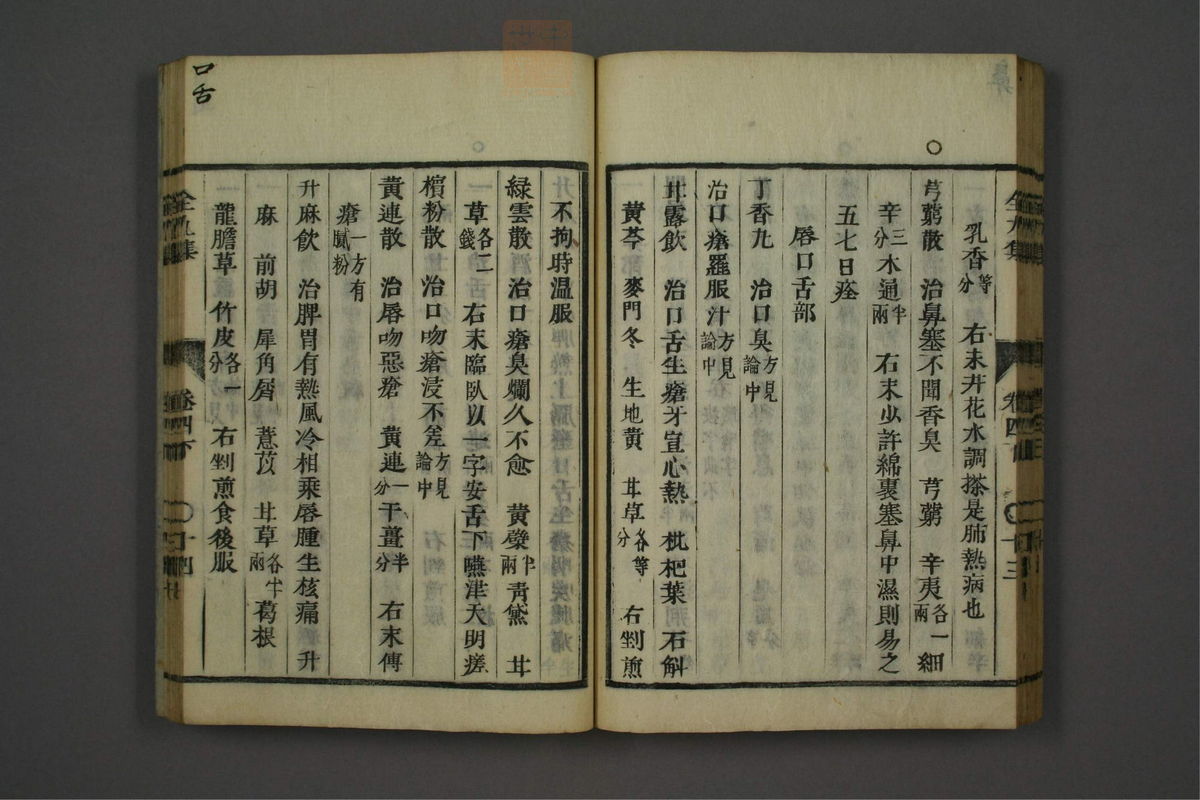 鼻
乳香等分　右末井花水調搽是肺熱病也
芎藭散　治鼻塞不聞香臭　芎藭　辛夷各一兩　細
辛三分　木通半兩　右末少許綿裹塞鼻中濕則易之
五七日痊
唇口舌部
丁香丸　治口臭方見論中
治口瘡羅服汁方見論中
甘露飲　治口舌生瘡牙宣心熱　枇杷葉　石斛
黃芩　麥門冬　生地黃　甘草各等分　右剉煎
不拘時温服
綠雲散　治口瘡臭爛久不愈　黃蘗半兩　青黛　甘
草各二錢　右末臨臥以一字安舌下嚥津天明瘥
檳粉散　治口吻瘡浸不差方見論中
黃連散　治唇吻惡瘡　黃連一分　干薑半分　右末傅
瘡一方有膩粉
升麻飲　治脾胃有熱風冷相乘唇腫生核痛　升
麻　前胡　犀角屑　薏苡　甘草各半兩　葛根
龍膽草　竹皮各一分　右剉煎食後服
口舌
全九集　卷四下　十四